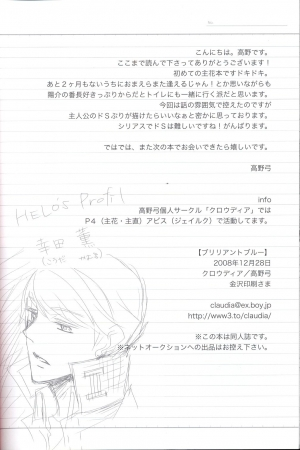 こんにちは。高野です。
ここまで読んで下さってありがとうございます！
初めての主花本ですドキドキ。
あと２ヶ月もないうちにおまえらまた逢えるじゃん！とか思いながらも
陽介の番長好きっぷりからだとトイレにも一緒に行く派だと思います。
今回は話の雰囲気で控えたのですが
主人公のドSぶりが描けたらいいなぁと密かに思っております。
シリアスでドSは難しいですね！がんばります。
ではでは、また次の本でお会いできたら嬉しいです。
高野弓
info
高野弓個人サークル「クロウディア」では
P4（主花・主直）アビス（ジェイルク）で活動してます。
HELO's Profil
幸田 薫
【ブリリアントブルー】
2008年12月28日
クロウディア／高野弓
金沢印刷さま
claudia@ex.boy.jp
http://www3.to/claudia/
※この本は同人誌です。
※ネットオークションへの出品はお控え下さい。